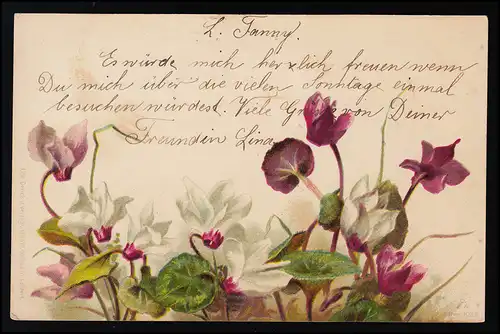 L. Fanny.
Es würde mich herzlich freuen wenn
Du mich über die vielen Sonntage einmal
besuchen würdest. Viele Grüße von Deiner
Freundin Lina